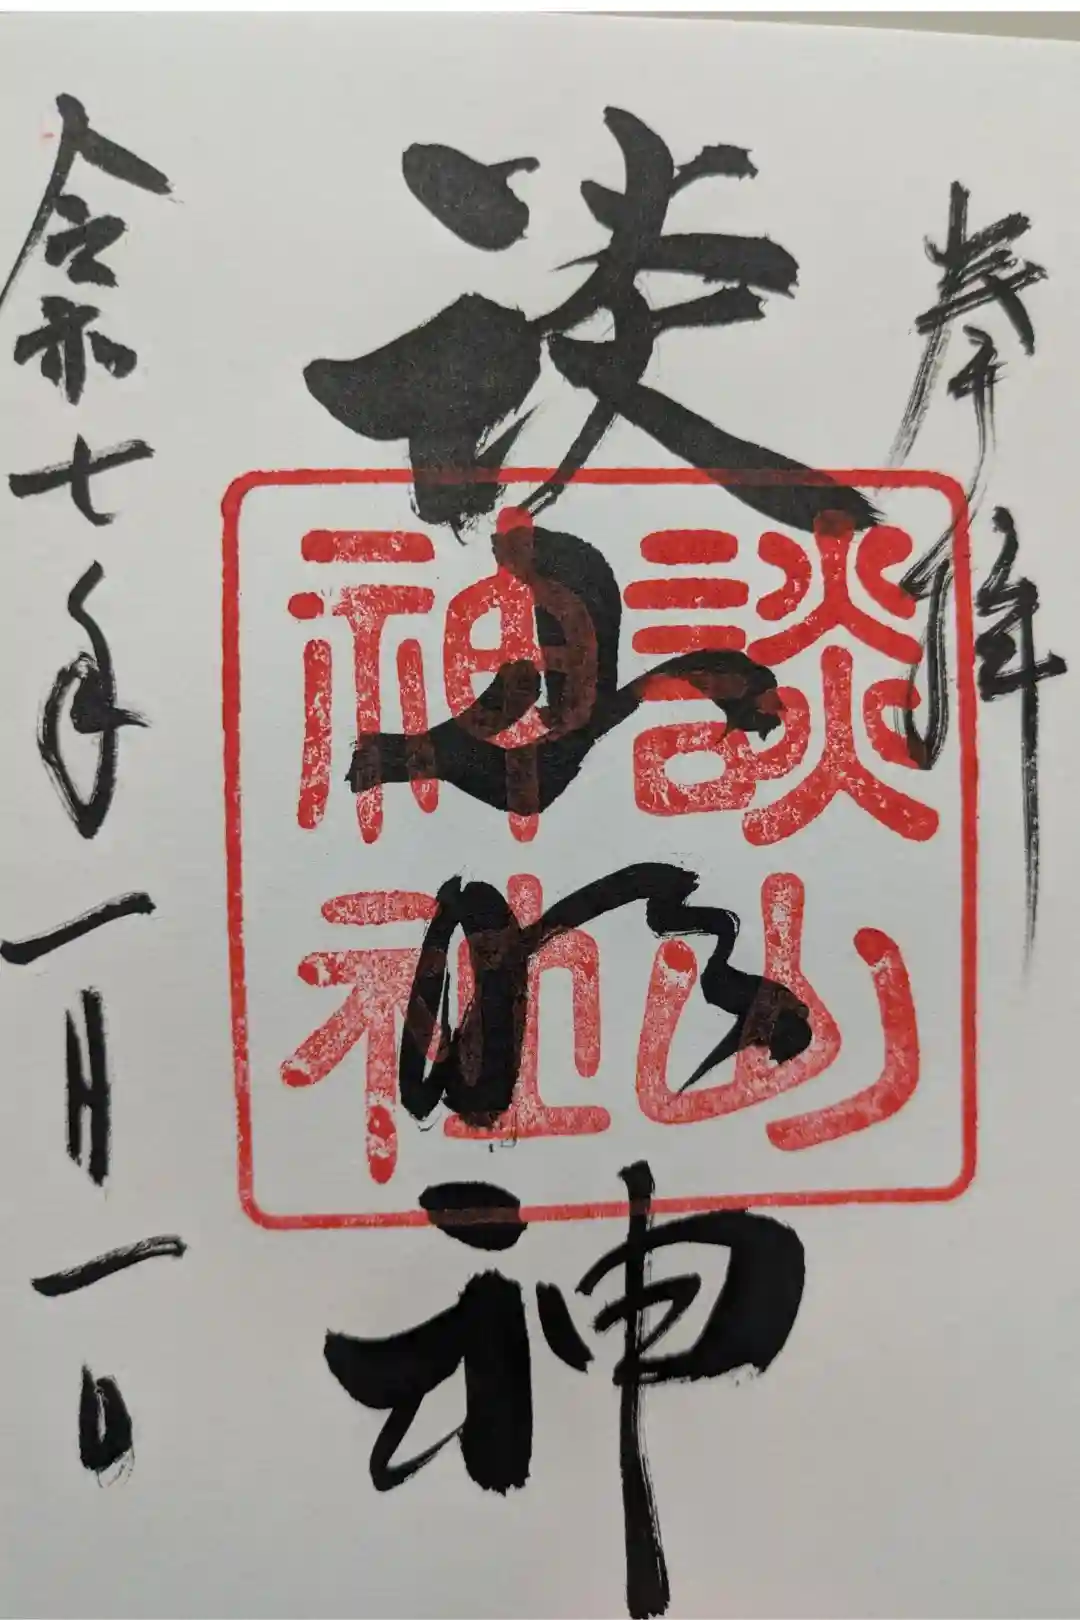 奉拝
談山明神
令和七年一月一日
談山
神社